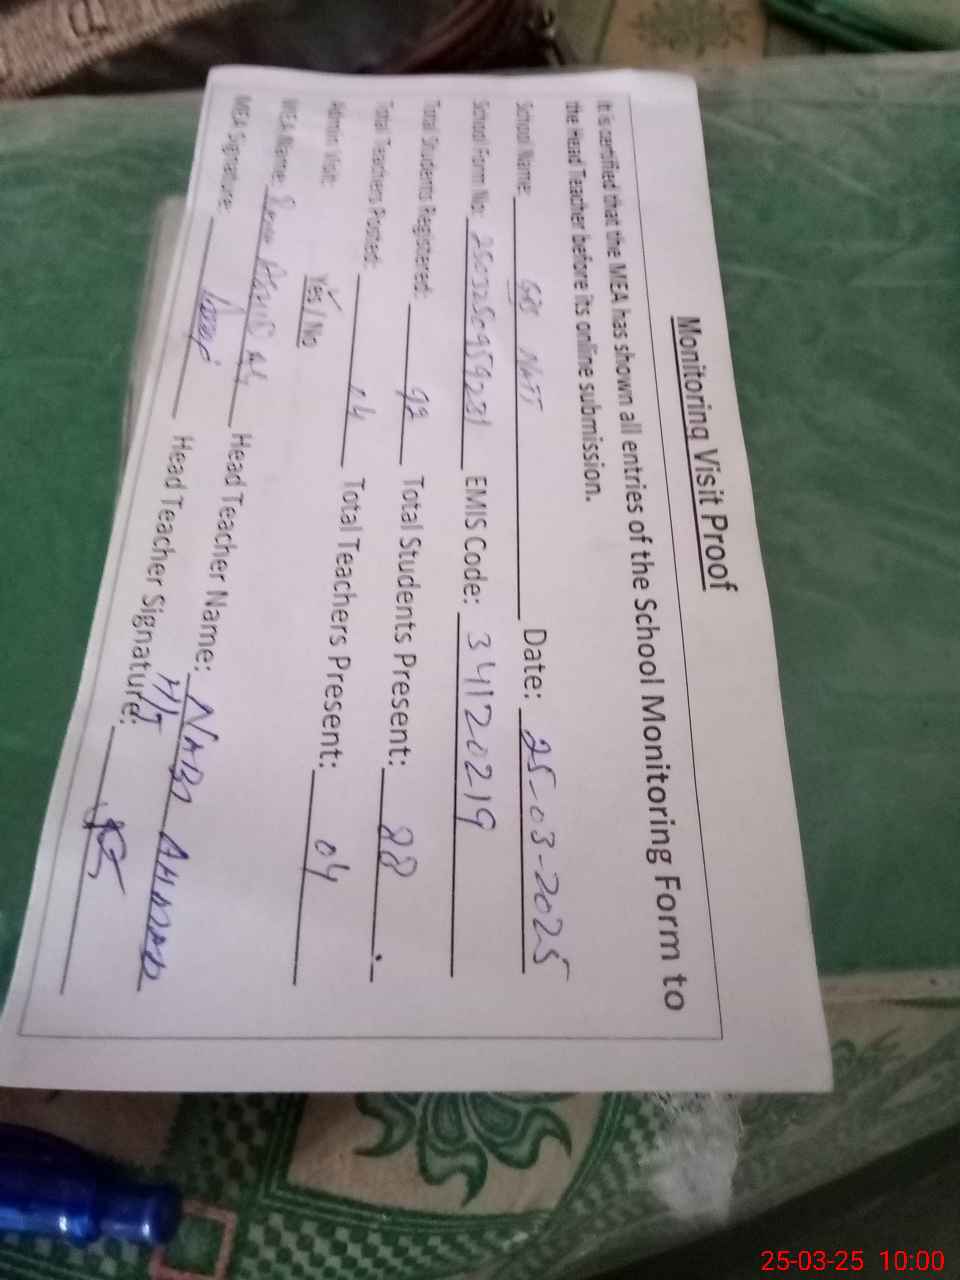 Monitoring Visit Proof
It is certified that the MEA has shown all entries of the School Monitoring Form to
the Head Teacher before its online submission.
School Name: GPS NATT Date: 25-03-2025
School Form No: 250325095923 EMIS Code: 34120219
Total Students Registered: 92 Total Students Present: 88
Total Teachers Posted: 04 Total Teachers Present: 04
Admin Visit: Yes / No
MEA Name: Head Teacher Name: NABI AHMAD
MEA Signature: Head Teacher Signature:
H/T
25-03-25 10:00